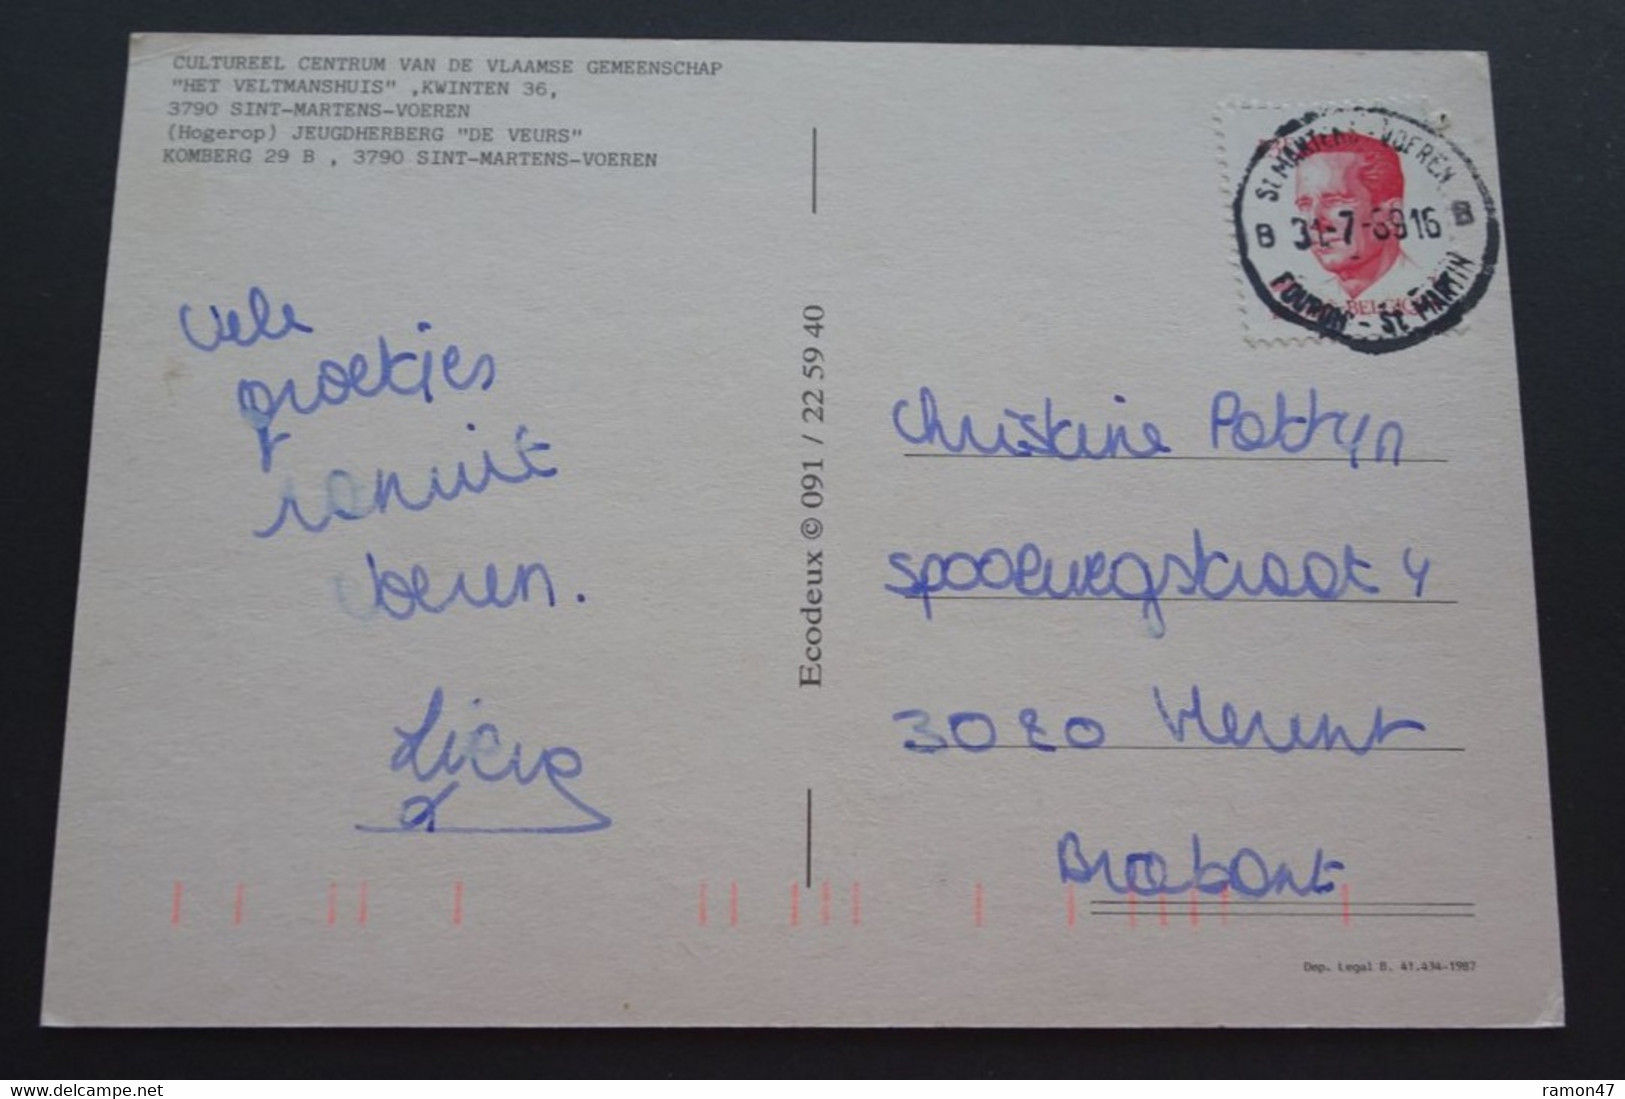 CULTUREEL CENTRUM VAN DE VLAAMSE GEMEENSCHAP
"HET VELTMANSHUIS" ,KWINTEN 36,
3790 SINT-MARTENS-VOEREN
(Hogerop) JEUGDHERBERG "DE VEURS"
KOMBERG 29 B , 3790 SINT-MARTENS-VOEREN
Vele
groetjes
vanuit
Voeren.
Lieve
Ecodeux © 091 / 22 59 40
ST MARTENS-VOEREN
B 31-7-8916 B
FOURON-ST MARTIN
BELGIQUE
Christine Pattyn
Spoorwegstraat 4
3020 Herent
Brabant
Dep. Legal B. 41.434-1987
ramon47